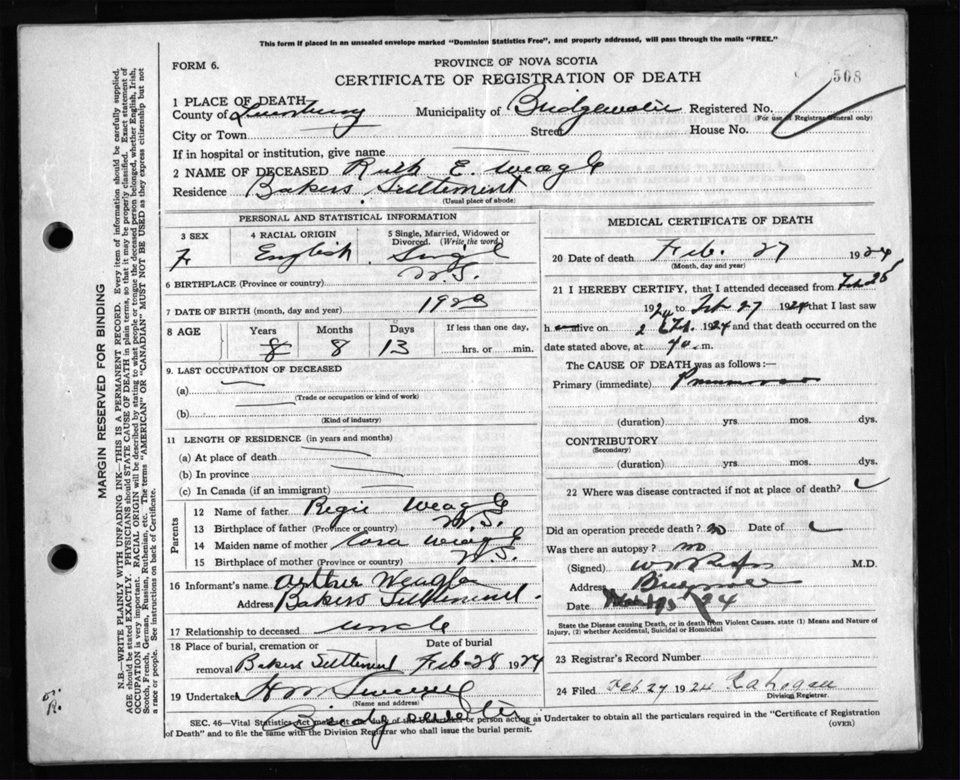 This form if placed in an unsealed envelope marked "Dominion Statistics Free", and properly addressed, will pass through the mails "FREE."
FORM 6.
PROVINCE OF NOVA SCOTIA
CERTIFICATE OF REGISTRATION OF DEATH
508
1 PLACE OF DEATH
County of Lunenburg Municipality of Bridgewater Registered No.
(For use of Registrar General only)
City or Town Street House No.
If in hospital or institution, give name
2 NAME OF DECEASED Ruth E. Weagle
Residence Bakers Settlement
(Usual place of abode)
PERSONAL AND STATISTICAL INFORMATION
3 SEX 4 RACIAL ORIGIN 5 Single, Married, Widowed or Divorced. (Write the word)
F English Single
6 BIRTHPLACE (Province or country) N.S.
7 DATE OF BIRTH (month, day and year) 1923
8 AGE Years Months Days If less than one day,
8 8 13 hrs. or min.
9. LAST OCCUPATION OF DECEASED
(a)
(Trade or occupation or kind of work)
(b)
(Kind of industry)
11 LENGTH OF RESIDENCE (in years and months)
(a) At place of death
(b) In province
(c) In Canada (if an immigrant)
Parents
12 Name of father Regie Weagle
13 Birthplace of father (Province or country) N.S.
14 Maiden name of mother Cora Weagle
15 Birthplace of mother (Province or country) N.S.
16 Informant's name Arthur Weagle
Address Bakers Settlement
17 Relationship to deceased uncle
18 Place of burial, cremation or removal Bakers Settlement Date of burial Feb-28 1924
19 Undertaker
(Name and address)
Bridgewater
MEDICAL CERTIFICATE OF DEATH
20 Date of death Feb. 27 1924
(Month, day and year)
21 I HEREBY CERTIFY, that I attended deceased from Feb 26
1924 to Feb 27 1924 that I last saw
h alive on 26 Feb. 1924 and that death occurred on
date stated above, at m.
The CAUSE OF DEATH was as follows:—
Primary (immediate) Pneumonia
(duration) yrs. mos. dys.
CONTRIBUTORY
(Secondary)
(duration) yrs. mos. dys.
22 Where was disease contracted if not at place of death?
Did an operation precede death? no Date of
Was there an autopsy? no
(Signed) M.D.
Address
Date 24
State the Disease causing Death, or in death from Violent Causes. state (1) Means and Nature of Injury, (2) whether Accidental, Suicidal or Homicidal
23 Registrar's Record Number
24 Filed Feb 27 1924
Division Registrar
SEC. 46—Vital Statistics Act makes it the duty of the Undertaker or person acting as Undertaker to obtain all the particulars required in the "Certificate of Registration of Death" and to file the same with the Division Registrar who shall issue the burial permit.
(OVER)
MARGIN RESERVED FOR BINDING
N.B.—WRITE PLAINLY WITH UNFADING INK—THIS IS A PERMANENT RECORD. Every item of information should be carefully supplied.
AGE should be stated EXACTLY. PHYSICIANS should STATE CAUSE OF DEATH in plain terms, so that it may be properly classified. Exact statement of
OCCUPATION is very important. RACIAL ORIGIN will be described by stating to what people or tongue the deceased person belonged, whether English, Irish,
Scotch, French, German, Russian, Ruthenian, etc. The terms "AMERICAN" or "CANADIAN" MUST NOT BE USED as they express citizenship but not
a race or people. See instructions on back of Certificate.